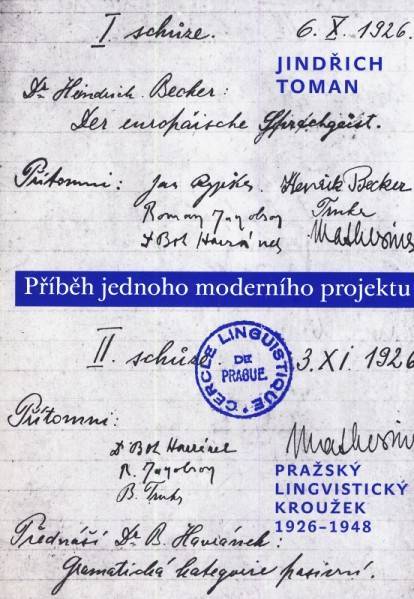 I. schůze. 6. X. 1926.
JINDŘICH
TOMAN
Dr. Heindrich Becker:
Der europäische Sprachgeist.
Přítomni: Jan Rypka. Henrik Becker
Roman Jagobson Trnka
Dr Boh Havránek Mathesius
Příběh jednoho moderního projektu
II. schůze. 3. XI. 1926
CERCLE LINGUISTIQUE
DE
PRAGUE
Přítomni:
Dr Boh Havránek Mathesius
R. Jagobson
B. Trnka
PRAŽSKÝ
LINGVISTICKÝ
KROUŽEK
1926–1948
Přednáší Dr. B. Havránek:
Gramatická kategorie pasivní.